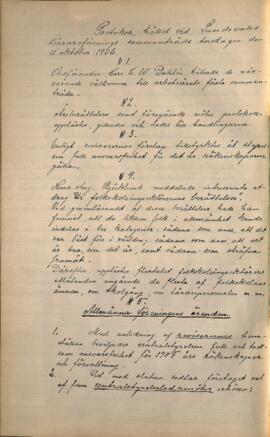 Protokoll, hållet vid Sundsvalls
lärareförenings sammanträde lördagen den
11 oktober 1906.
§ 1.
Ordföranden Carl E. W. Dahlin hälsade de när-
varande välkomna till arbetsårets första samman-
träde.
§ 2.
Årsberättelsen samt föregående mötes protokoll
upplästes, gillades och lades till handlingarna.
§ 3.
Enligt revisorernas förslag tillstyrktes åt styrel-
sen full ansvarsfrihet för det år räkenskaperna
gällas.
§ 4.
Herr Aug. Björklund meddelade intressanta ut-
drag ur folkskolinspektörernas berättelser.
Vid genomläsandet af dess berättelser hade han
funnit, att de liksom folk i allmänhet kunde
indelas i tre kategorier: sådana som anse, att det
var bäst för i världen; sådana som anse, att det
är bra, som det är, samt sådana, som sträfva
framåt.
Därefter upplästes flertalet folkskolinspektörers
uttalanden angående de flesta af folkskolans
ämnen, om skolgång, om lärarepersonalen m. m.
§ 5.
Allmänna föreningens ärenden.
1. Med anledning af revisorernas hem-
ställan beviljades centralstyrelsen full och tack-
sam ansvarsfrihet för 1905 års räkenskaper
och förvaltning.
2. Vid med slutna sedlar företaget val
af fem centralstyrelseledamöter erhöllo: